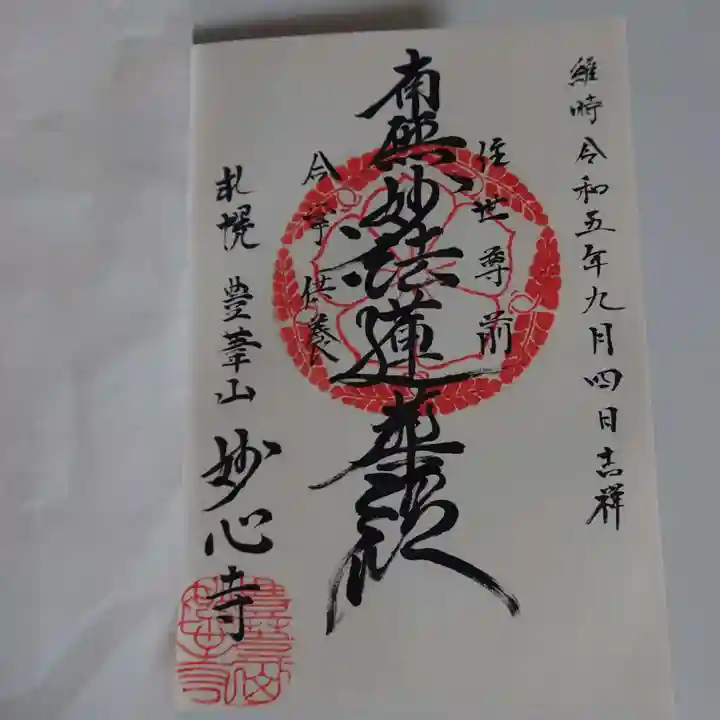 維時令和五年九月四日吉祥
在世尊前
南無妙法蓮華経
合掌供養
札幌 豊葦山 妙心寺